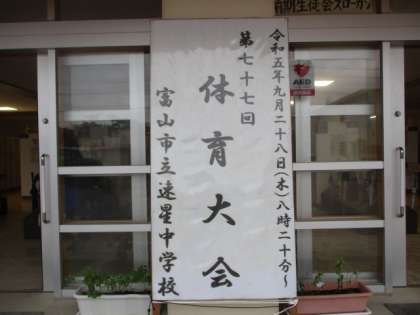 前期生徒会スローガン
令和五年九月二十八日(木)八時二十分～
第七十七回
体育大会
富山市立速星中学校
AED